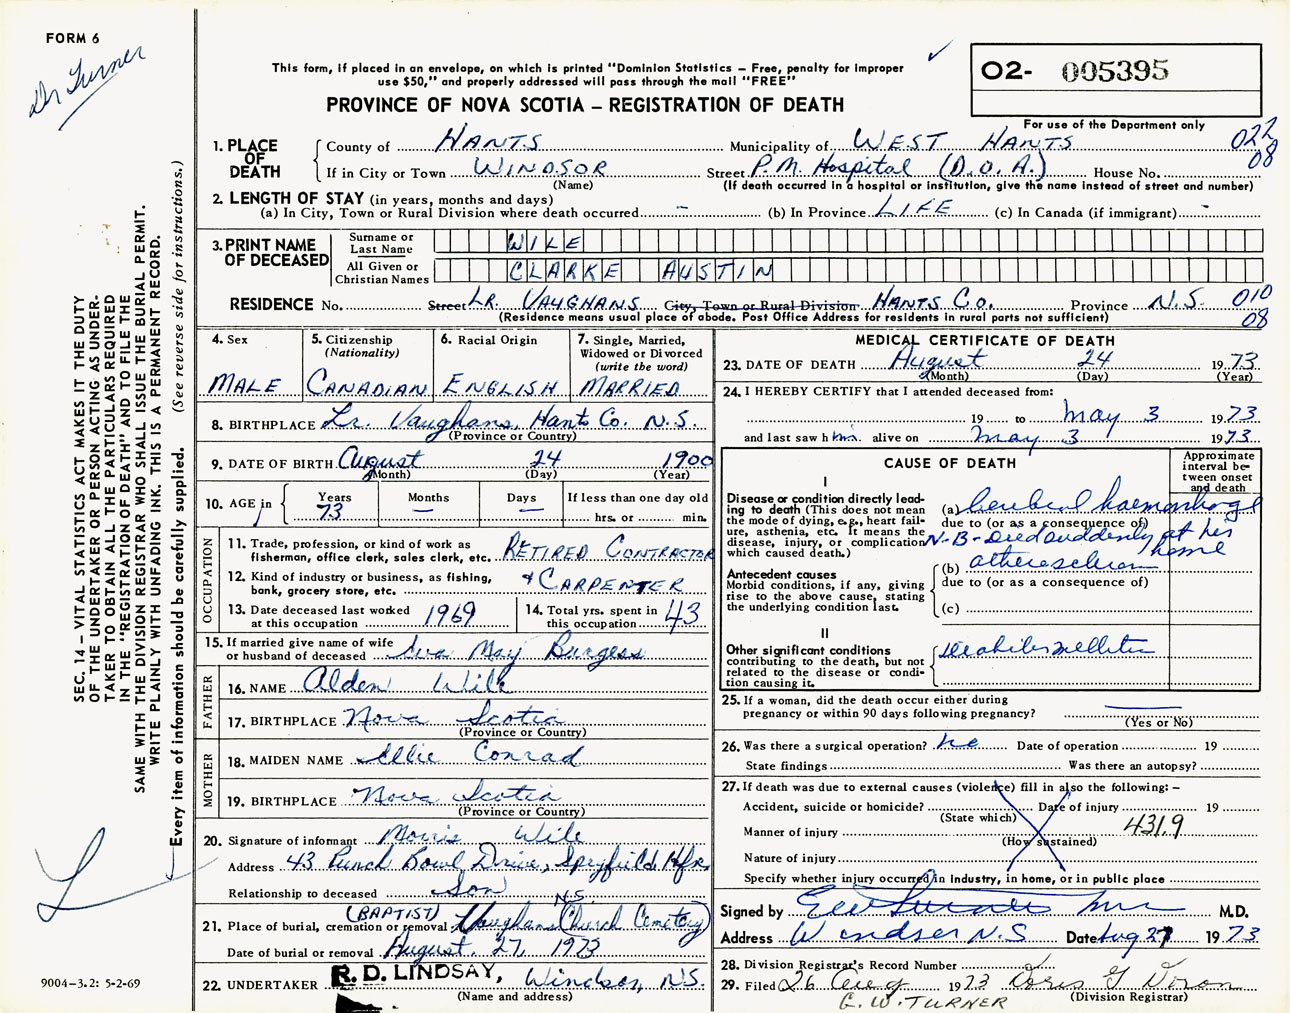 FORM 6
Dr Turner
This form, if placed in an envelope, on which is printed "Dominion Statistics – Free, penalty for improper
use $50," and properly addressed will pass through the mail "FREE"
O2- 005395
PROVINCE OF NOVA SCOTIA – REGISTRATION OF DEATH
For use of the Department only
022
08
1. PLACE OF DEATH
County of HANTS Municipality of WEST HANTS
If in City or Town WINDSOR Street P.M. Hospital (D.O.A.) House No.
(Name) (If death occurred in a hospital or institution, give the name instead of street and number)
2. LENGTH OF STAY (in years, months and days)
(a) In City, Town or Rural Division where death occurred – (b) In Province LIFE (c) In Canada (if immigrant) -
3. PRINT NAME OF DECEASED
Surname or Last Name WILE
All Given or Christian Names CLARKE AUSTIN
RESIDENCE No. Street LR. VAUGHANS City, Town or Rural Division HANTS CO. Province N.S. 010
08
(Residence means usual place of abode. Post Office Address for residents in rural parts not sufficient)
4. Sex
MALE
5. Citizenship
(Nationality)
CANADIAN
6. Racial Origin
ENGLISH
7. Single, Married,
Widowed or Divorced
(write the word)
MARRIED
8. BIRTHPLACE Lr. Vaughans, Hants Co. N.S.
(Province or Country)
9. DATE OF BIRTH August 24 1900
(Month) (Day) (Year)
10. AGE in
Years
73
Months
—
Days
—
If less than one day old
hrs. or min.
OCCUPATION
11. Trade, profession, or kind of work as
fisherman, office clerk, sales clerk, etc. RETIRED CONTRACTOR
12. Kind of industry or business, as fishing,
bank, grocery store, etc. & CARPENTER
13. Date deceased last worked
at this occupation 1969
14. Total yrs. spent in
this occupation 43
15. If married give name of wife
or husband of deceased Iva May Burgess
FATHER
16. NAME Alden Wile
17. BIRTHPLACE Nova Scotia
(Province or Country)
MOTHER
18. MAIDEN NAME Ellie Conrad
19. BIRTHPLACE Nova Scotia
(Province or Country)
20. Signature of informant Morris Wile
Address 43 Punch Bowl Drive, Spryfield Hfx
N.S.
Relationship to deceased Son
21. Place of burial, cremation or removal (BAPTIST) Vaughans Church Cemetery
Date of burial or removal August. 27, 1973
22. UNDERTAKER R. D. LINDSAY, Windsor, N.S.
(Name and address)
MEDICAL CERTIFICATE OF DEATH
23. DATE OF DEATH August 24 1973
(Month) (Day) (Year)
24. I HEREBY CERTIFY that I attended deceased from:
19 to May 3 1973
and last saw him alive on May 3 1973
CAUSE OF DEATH
Approximate
interval be-
tween onset
and death
I
Disease or condition directly lead-
ing to death (This does not mean
the mode of dying, e.g., heart fail-
ure, asthenia, etc. It means the
disease, injury, or complication
which caused death.)
(a) Cerebral haemorrhage
due to (or as a consequence of)
N-B- Died suddenly at his
home
Antecedent causes
Morbid conditions, if any, giving
rise to the above cause, stating
the underlying condition last.
(b) atherosclerosis
due to (or as a consequence of)
(c)
II
Other significant conditions
contributing to the death, but not
related to the disease or condi-
tion causing it.
Diabetes mellitus
25. If a woman, did the death occur either during
pregnancy or within 90 days following pregnancy?
(Yes or No)
26. Was there a surgical operation? no Date of operation 19
State findings Was there an autopsy?
27. If death was due to external causes (violence) fill in also the following: –
Accident, suicide or homicide? Date of injury 19
(State which)
Manner of injury 431.9
(How sustained)
Nature of injury
Specify whether injury occurred in industry, in home, or in public place
Signed by EW Turner M.D.
Address Windsor N.S Date Aug 27 1973
28. Division Registrar's Record Number
29. Filed 26 Aug 1973 Doris G Dixon
(Division Registrar)
E. W. TURNER
SEC. 14 – VITAL STATISTICS ACT MAKES IT THE DUTY
OF THE UNDERTAKER OR PERSON ACTING AS UNDER-
TAKER TO OBTAIN ALL THE PARTICULARS REQUIRED
IN THE "REGISTRATION OF DEATH" AND TO FILE THE
SAME WITH THE DIVISION REGISTRAR WHO SHALL ISSUE THE BURIAL PERMIT.
WRITE PLAINLY WITH UNFADING INK. THIS IS A PERMANENT RECORD.
Every item of information should be carefully supplied. (See reverse side for instructions.)
9004-3.2: 5-2-69